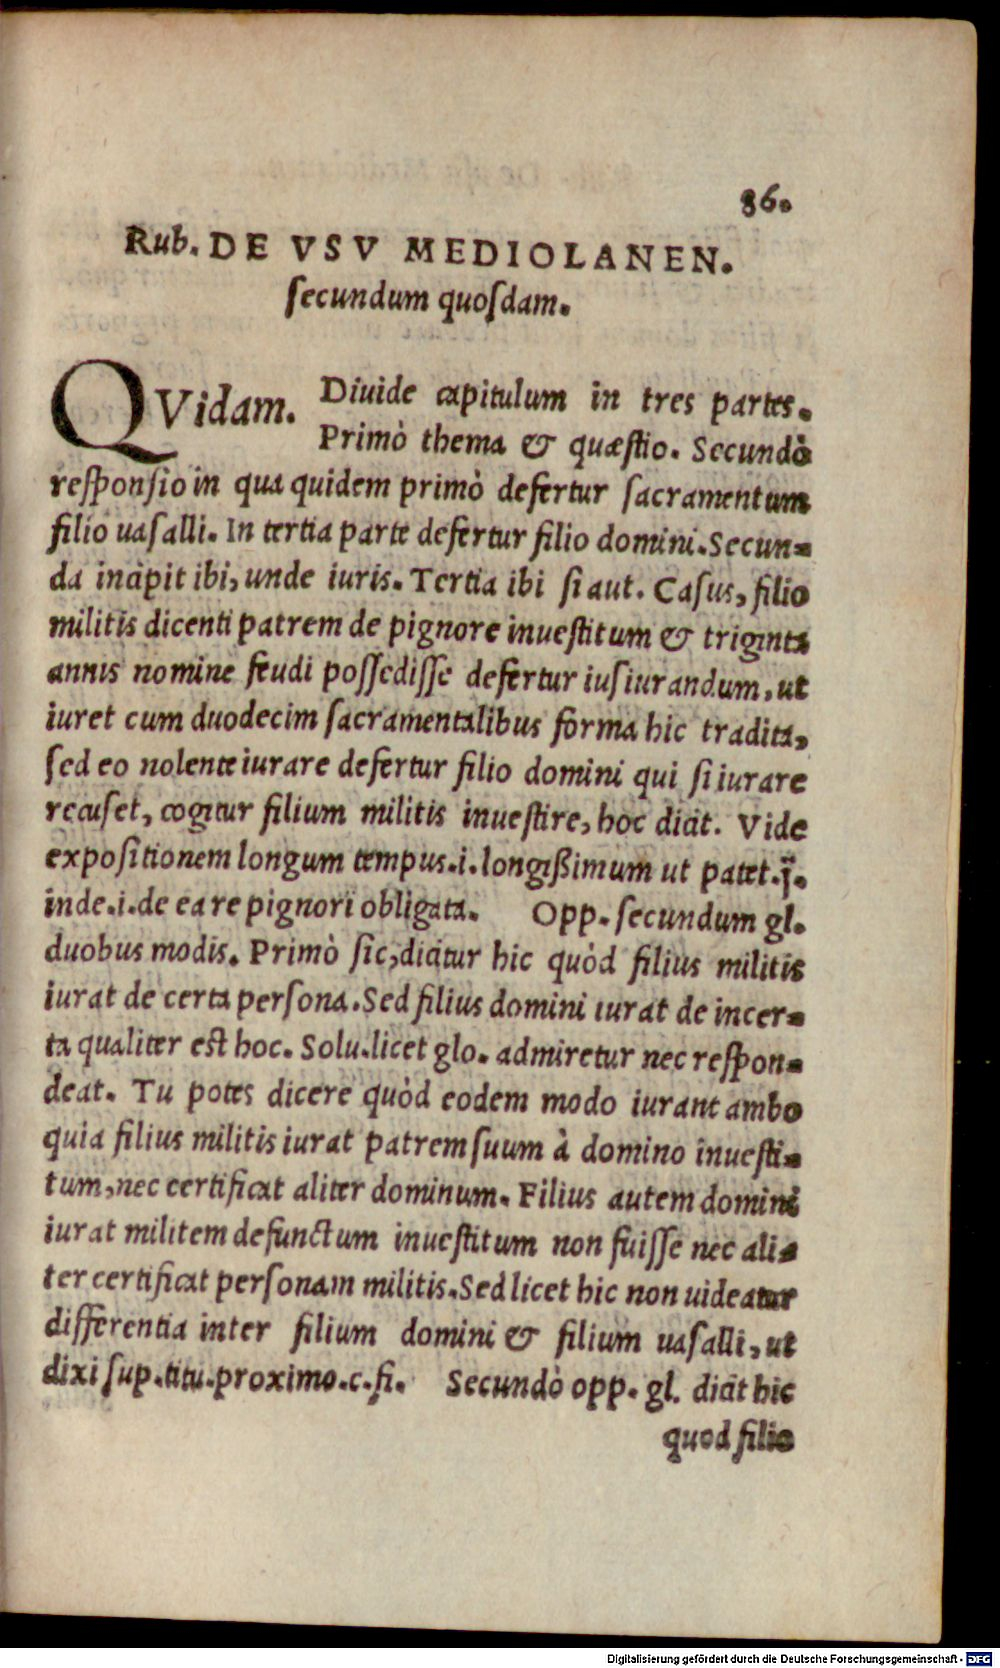 86.
Rub. DE VSV MEDIOLANEN.
secundum quosdam.
QVidam. Diuide capitulum in tres partes.
Primò thema & quæstio. Secundò
responsio in qua quidem primò defertur sacramentum
filio uasalli. In tertia parte defertur filio domini. Secun-
da incipit ibi, unde iuris. Tertia ibi si aut. Casus, filio
militis dicenti patrem de pignore inuestitum & triginta
annis nomine feudi possedisse defertur iusiurandum, ut
iuret cum duodecim sacramentalibus forma hic tradita,
sed eo nolente iurare defertur filio domini qui si iurare
recuset, cogitur filium militis inuestire, hoc dicit. Vide
expositionem longum tempus.i.longißimum ut patet.j̃.
inde.i.de ea re pignori obligata. Opp. secundum gl.
duobus modis. Primò sic, dicitur hic quòd filius militis
iurat de certa persona. Sed filius domini iurat de incer-
ta qualiter est hoc. Solu. licet glo. admiretur nec respon-
deat. Tu potes dicere quòd eodem modo iurant ambo
quia filius militis iurat patrem suum à domino inuesti-
tum, nec certificat aliter dominum. Filius autem domini
iurat militem defunctum inuestitum non fuisse nec ali-
ter certificat personam militis. Sed licet hic non uideatur
differentia inter filium domini & filium uasalli, ut
dixi sup. titu. proximo. c. fi. Secundò opp. gl. dicit hic
quod filio
Digitalisierung gefördert durch die Deutsche Forschungsgemeinschaft - DFG